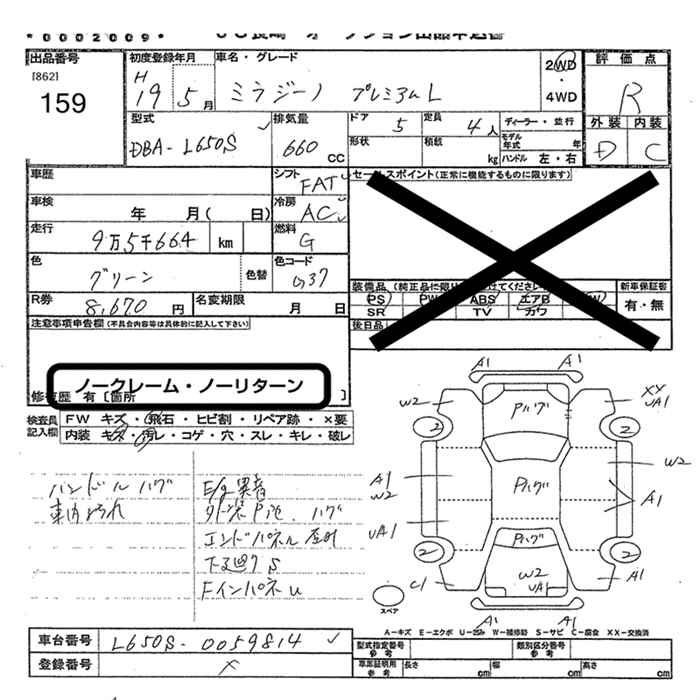 *0002009*
出品番号
[862]
159
初度登録年月
H
19年 5月
車名・グレード
ミラジーノ プレミアムL
2WD
・
4WD
評価点
R
外装 内装
D C
型式
DBA-L650S
排気量
660 CC
ドア
5
定員
4人
ディーラー・並行
形状
積載
kg
モデル年式 年
ハンドル 左・右
車歴
シフト
FAT
セールスポイント(正常に機能するものに限ります)
車検
年 月( 日)
冷房
AC
走行
9万5千664 km
燃料
G
色
グリーン
色替
色コード
G37
装備品
新車保証書
PS PW ABS エアB
SR TV カワ
有・無
R券
8,670円
名変期限
月 日
後日品
注意事項申告欄(不具合内容等は具体的に記入して下さい)
ノークレーム・ノーリターン
修復歴 有 [箇所 ]
検査員記入欄
FW キズ・飛石・ヒビ割・リペア跡・×要
内装 キズ・汚レ・コゲ・穴・スレ・キレ・破レ
ハンドルハゲ
車内よごれ
E/g異音
エンドパネル
下廻りS
FインパネU
A1 A1
W2
Pハゲ
XY
UA1
2 2
W2
A1
W2
Pハゲ
A1
UA1
Pハゲ
2 2
C1
W2
UA1
A1
スペア
A1 A1
A-キズ E-エクボ U-凹み W-補修跡 S-サビ C-腐食 XX-交換済
車台番号
L650S-0059814
型式指定番号
参考
類別区分番号
参考
登録番号
×
車庫証明用
参考
長さ cm
幅 cm
高さ cm